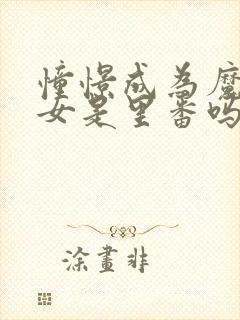 憧憬成為魔
女是里番吗
涂畫非